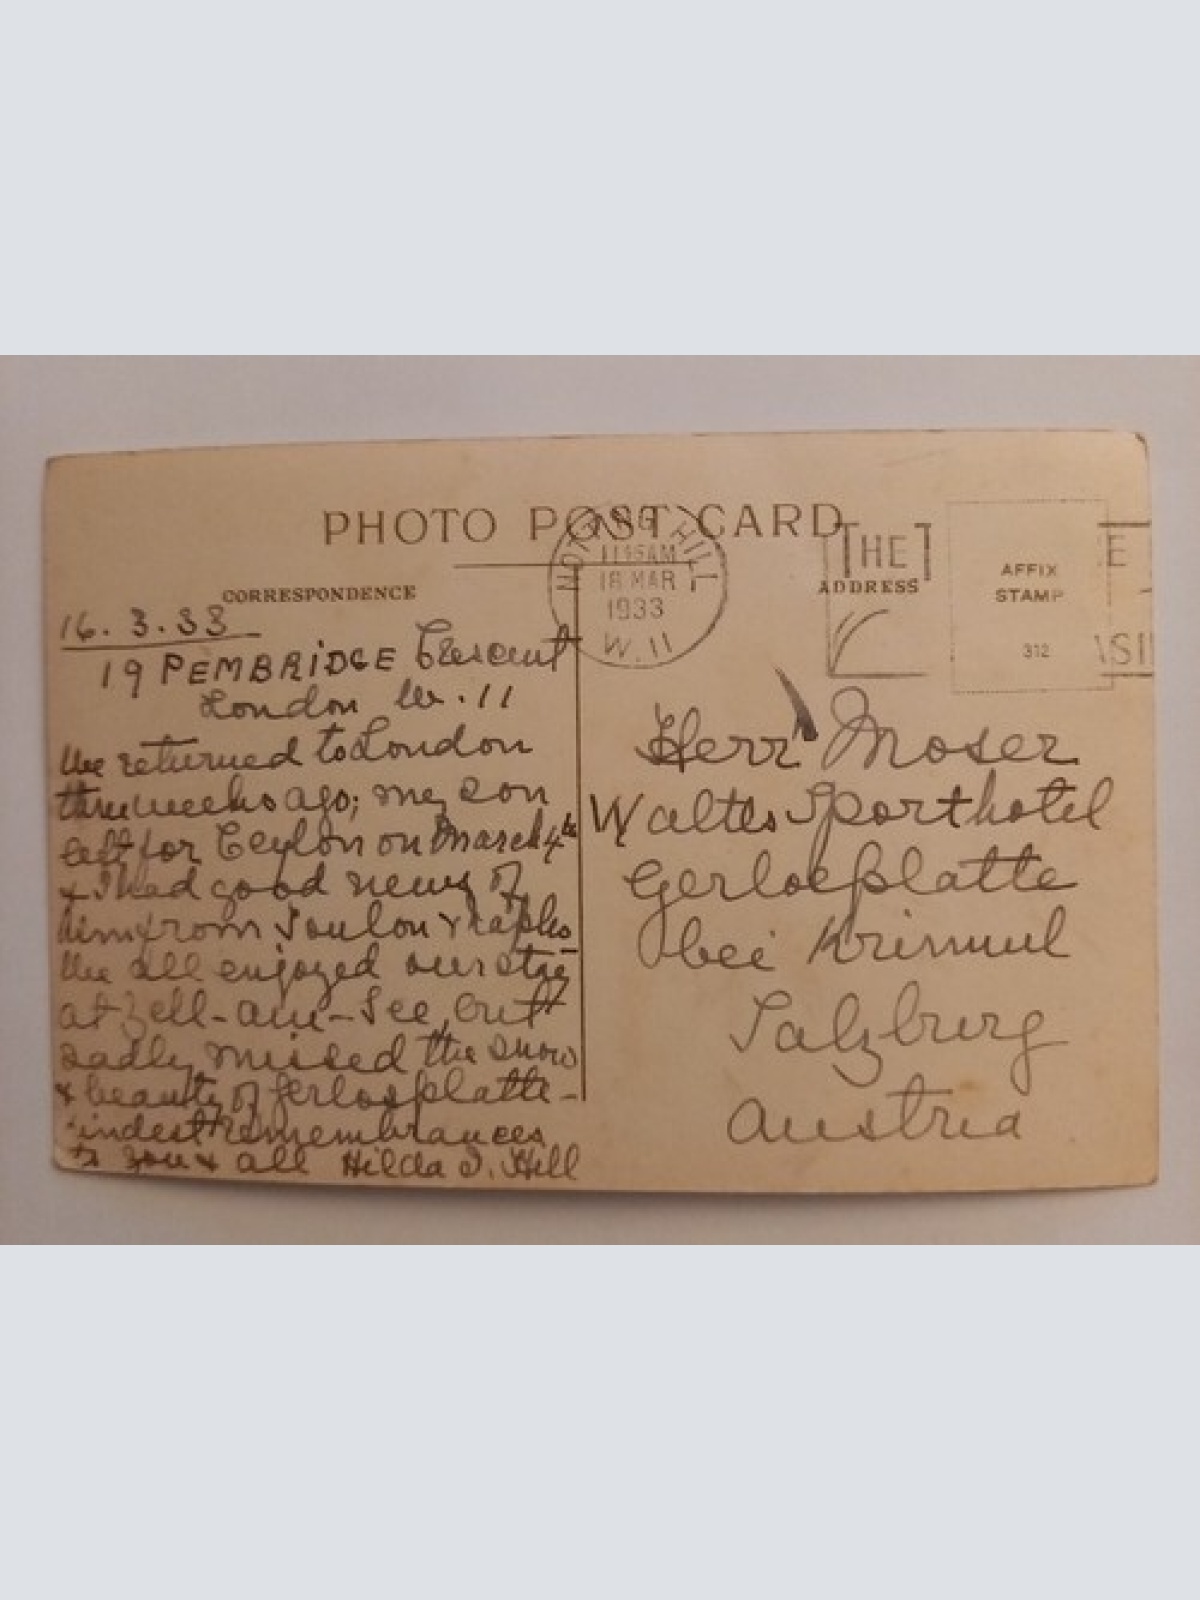 PHOTO POST CARD
NOTTING HILL
11 15 AM
18 MAR
1933
W. 11
THE
E
ASI
CORRESPONDENCE
ADDRESS
AFFIX
STAMP
312
16. 3. 33
19 PEMBRIDGE Crescent
London W. 11
We returned to London
three weeks ago; my son
left for Ceylon on March 4th
& I had good news of
him from Toulon & Naples
We all enjoyed our stay
at Zell-am-See, but
sadly missed the snow
& beauty of Gerlosplatte -
kindest remembrances
to you & all Hilda I. Hill
Herr Moser
Waltes Sporthotel
Gerlosplatte
bei Krimml
Salzburg
Austria